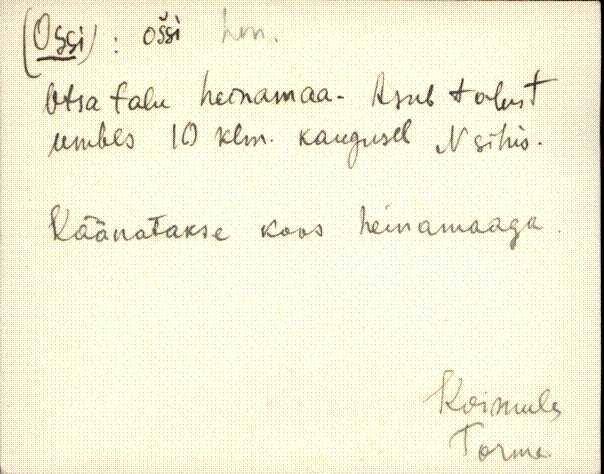 (Ossi) : ošsi hn.
Otsa talu heinamaa. Asub talust
umbes 10 klm. kaugusel N sihis.
Käänatakse koos heinamaaga.
Koimula
Torma